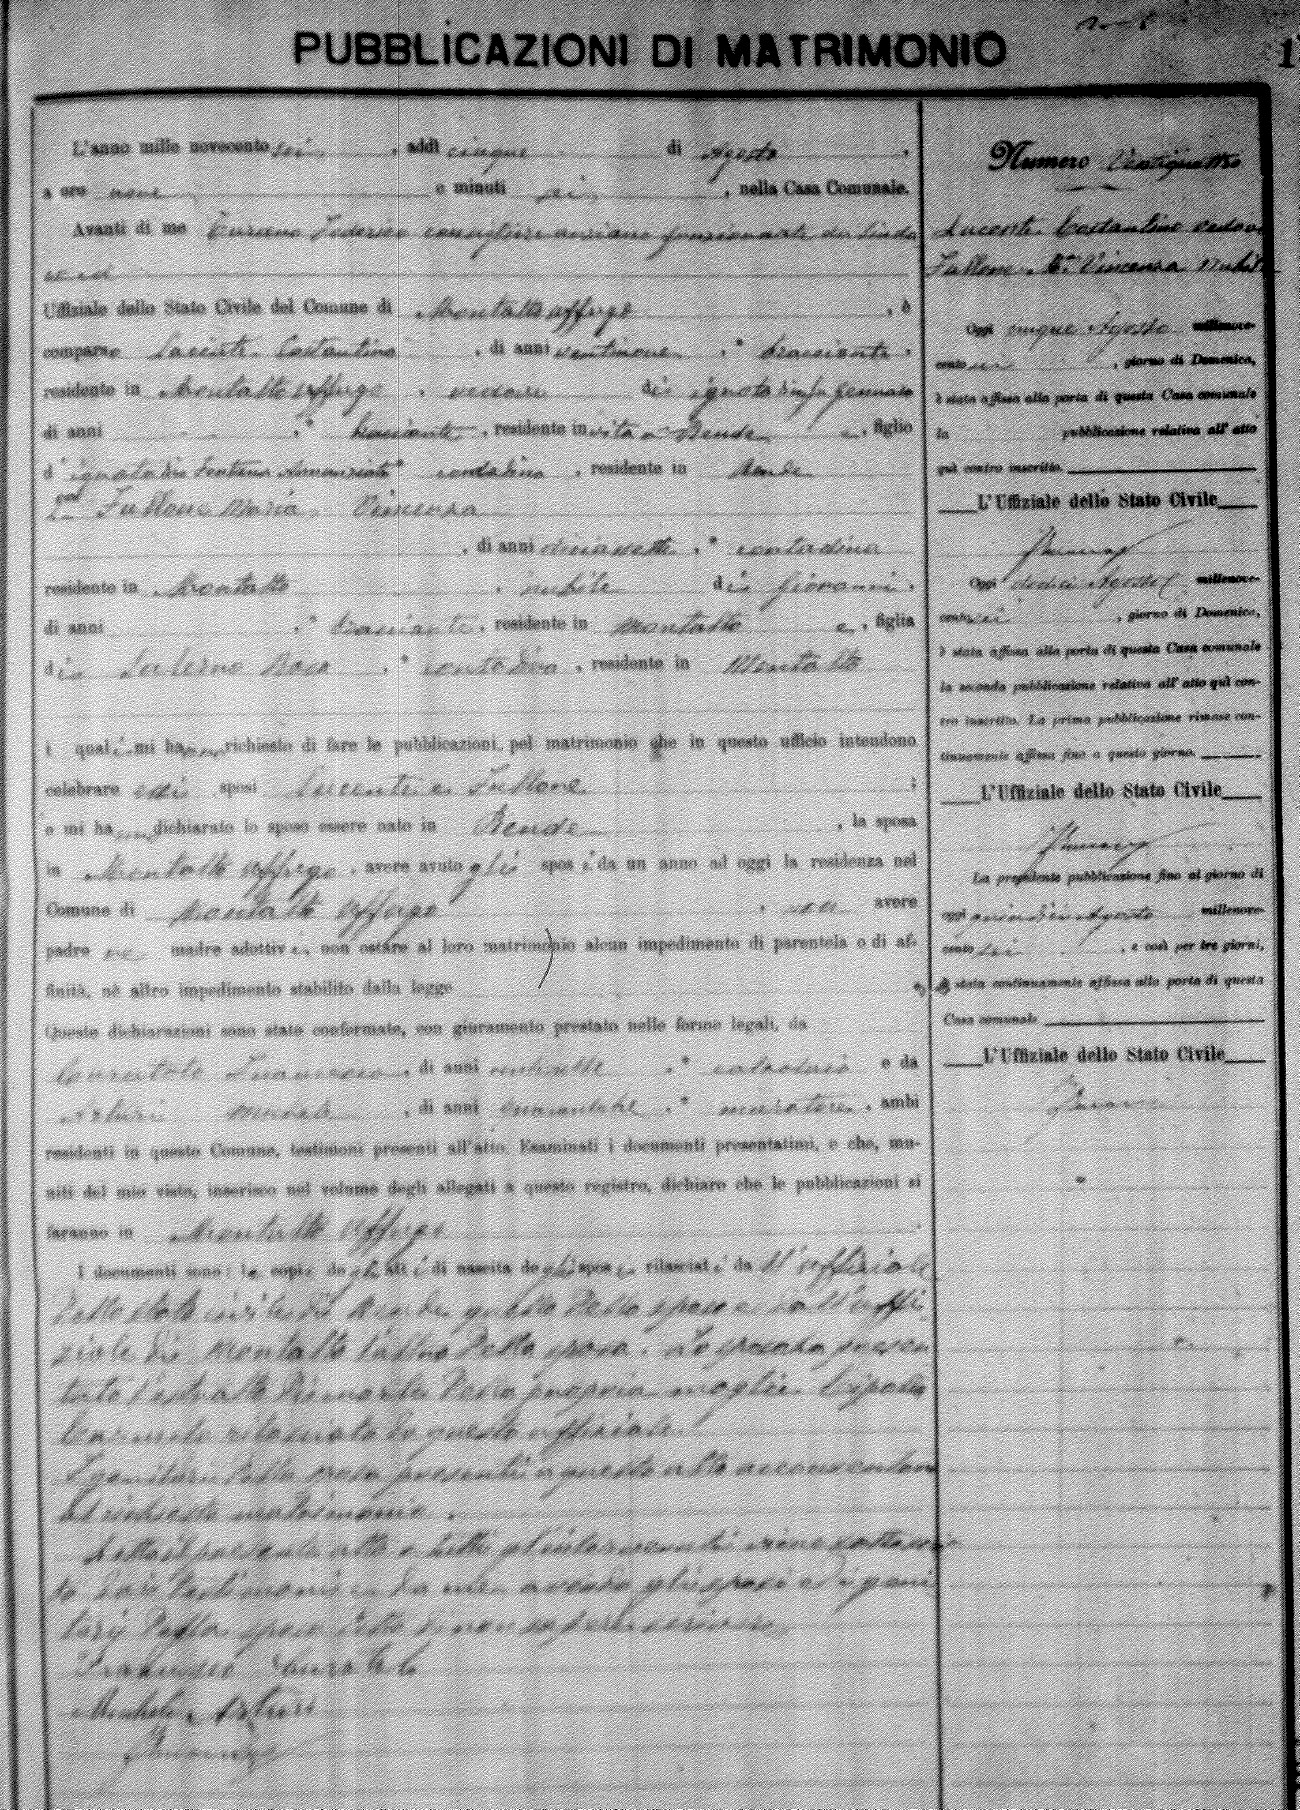 PUBBLICAZIONI DI MATRIMONIO
L'anno mille novecento sei, addì cinque di Agosto,
a ore nove e minuti sei, nella Casa Comunale.
Avanti di me Federico consigliere anziano funzionante da Sinda
co ed
Uffiziale dello Stato Civile del Comune di Montalto Uffugo, è
comparso Lucente Costantino, di anni ventinove, bracciante,
residente in Montalto Uffugo, vedovo di ignoto
di anni , bracciante, residente in vita a Rende e, figlio
d contadina, residente in Rende
Fullone Maria Vincenza
, di anni diciasette, contadina
residente in Montalto, nubile di Giovanni,
di anni , bracciante, residente in Montalto e, figlia
di Salerno Rosa, contadina, residente in Montalto
i quali mi hanno richiesto di fare le pubblicazioni pel matrimonio che in questo ufficio intendono
celebrare essi sposi Lucente e Fullone;
e mi hanno dichiarato lo sposo essere nato in Rende, la sposa
in Montalto Uffugo, avere avuto gli sposi da un anno ad oggi la residenza nel
Comune di Montalto Uffugo, non avere
padre ne madre adottivi, non ostare al loro matrimonio alcun impedimento di parentela o di af-
finità, nè altro impedimento stabilito dalla legge
Queste dichiarazioni sono state confermate, con giuramento prestato nelle forme legali, da
Francesco, di anni , calzolaio e da
Arturi Michele, di anni , muratore, ambi
residenti in questo Comune, testimoni presenti all'atto. Esaminati i documenti presentatimi, e che, mu-
niti del mio visto, inserisco nel volume degli allegati a questo registro, dichiaro che le pubblicazioni si
faranno in Montalto Uffugo.
I documenti sono: le copie degli atti di nascita degli sposi rilasciati da ll'uffiziale
dello stato civile di Rende quello dello sposo e dall'uffi
ziale di Montalto l'altro della sposa. Lo sposo ha presen
tato l'estratto di morte della propria moglie
Carmela rilasciato da questo uffiziale.
I genitori della sposa presenti a questo atto acconsentono
al richiesto matrimonio.
Letto il presente atto a tutti gl'intervenuti viene sottoscrit
to dai testimoni e da me avendo gli sposi ed i geni
tori della sposa detto di non sapere scrivere.
Francesco
Michele Arturi
Numero Ventiquattro
Lucente Costantino vedovo
Fullone Mª Vincenza nubile
Oggi cinque Agosto millenove-
cento sei, giorno di Domenica,
è stata affissa alla porta di questa Casa comunale
la pubblicazione relativa all'atto
quì contro inscritto.
L'Uffiziale dello Stato Civile
Oggi dodici Agosto millenove-
cento sei, giorno di Domenica,
è stata affissa alla porta di questa Casa comunale
la seconda pubblicazione relativa all'atto quì con-
tro inscritto. La prima pubblicazione rimase con-
tinuamente affissa fino a questo giorno.
L'Uffiziale dello Stato Civile
La presente pubblicazione fino al giorno di
oggi quindici Agosto millenove-
cento sei, e così per tre giorni,
è stata continuamente affissa alla porta di questa
Casa comunale
L'Uffiziale dello Stato Civile